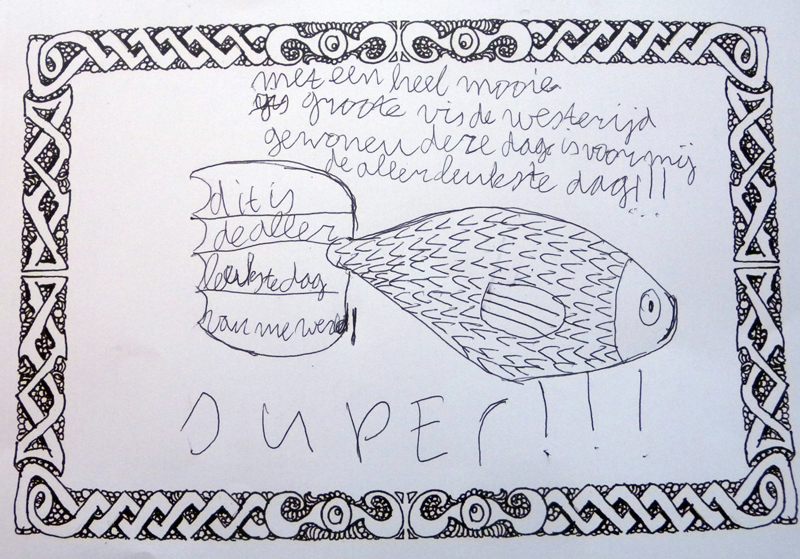 met een heel mooie
groote vis de westerijd
gewonen deze dag is voor mij
de aller leukste dag!!!
dit is
de aller
leukste dag
van me wered!
SUPEr!!!